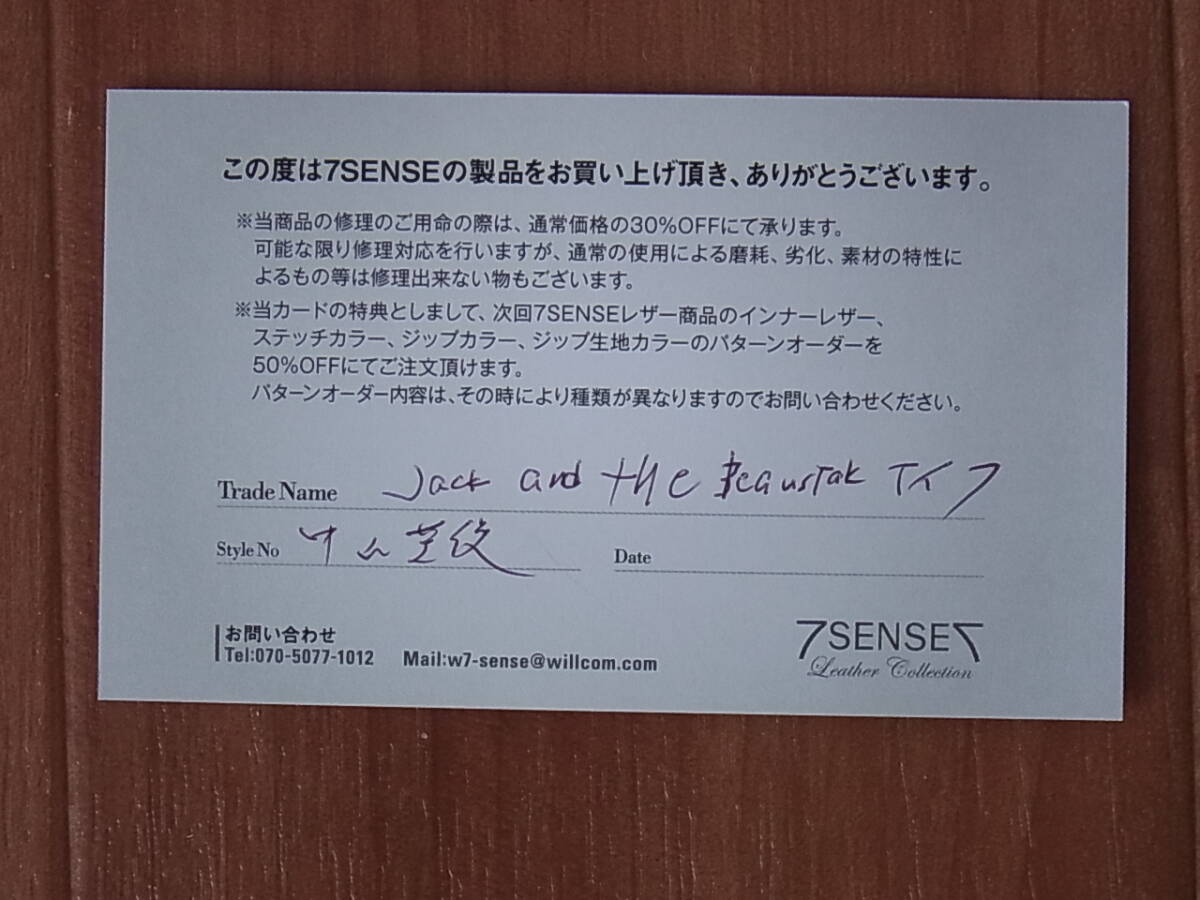 この度は7SENSEの製品をお買い上げ頂き、ありがとうございます。
※当商品の修理のご用命の際は、通常価格の30%OFFにて承ります。
可能な限り修理対応を行いますが、通常の使用による磨耗、劣化、素材の特性に
よるもの等は修理出来ない物もございます。
※当カードの特典としまして、次回7SENSEレザー商品のインナーレザー、
ステッチカラー、ジップカラー、ジップ生地カラーのパターンオーダーを
50%OFFにてご注文頂けます。
パターンオーダー内容は、その時により種類が異なりますのでお問い合わせください。
Trade Name Jack and the
Style No
Date
お問い合わせ
Tel:070-5077-1012 Mail:w7-sense@willcom.com
7SENSE7
Leather Collection